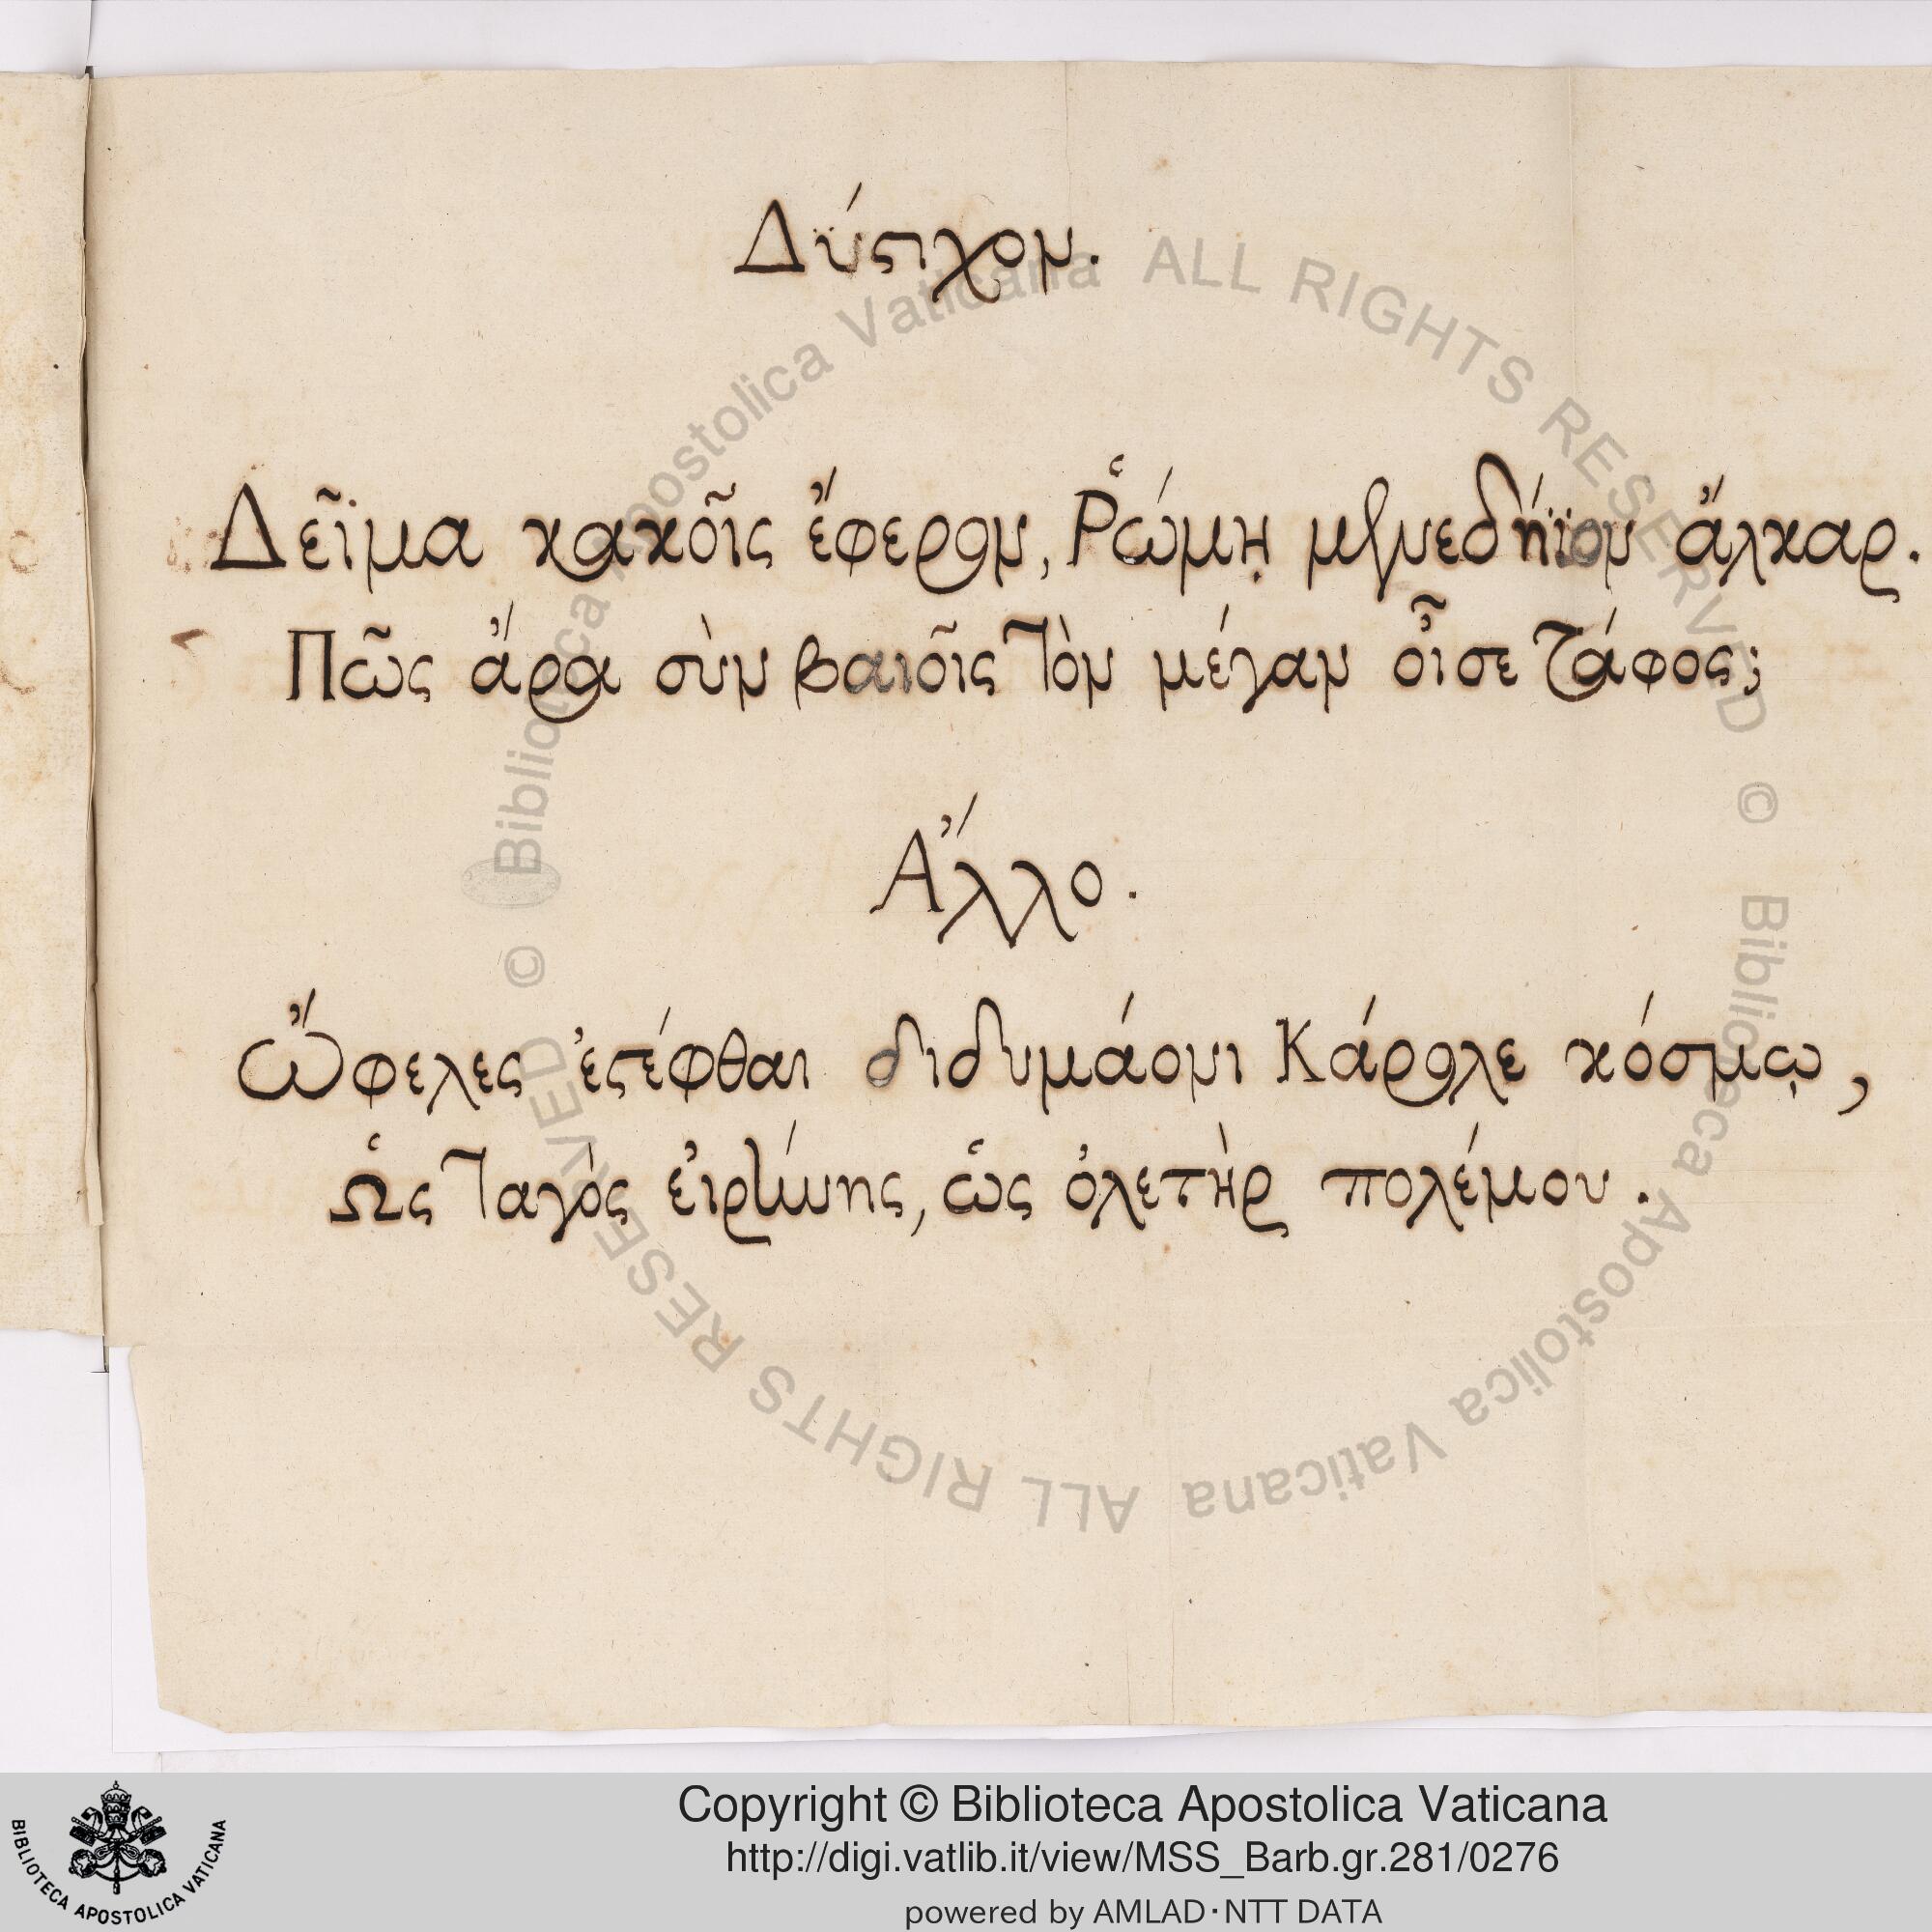 Δύστιχον.
Δεῖμα κακοῖς ἔφερον, Ῥώμῃ μενεδήϊον ἄλκαρ.
Πῶς ἄρα σὺν βαιοῖς τὸν μέγαν οἶσε τάφος;
Ἄλλο.
Ὤφελες ἐστέφθαι διδυμάονι Κάρολε κόσμῳ,
Ὡς ταγὸς εἰρήνης, ὡς ὀλετὴρ πολέμου.
© Biblioteca Apostolica Vaticana ALL RIGHTS RESERVED
© Biblioteca Apostolica Vaticana ALL RIGHTS RESERVED
BIBLIOTECA APOSTOLICA VATICANA
Copyright © Biblioteca Apostolica Vaticana
http://digi.vatlib.it/view/MSS_Barb.gr.281/0276
powered by AMLAD·NTT DATA